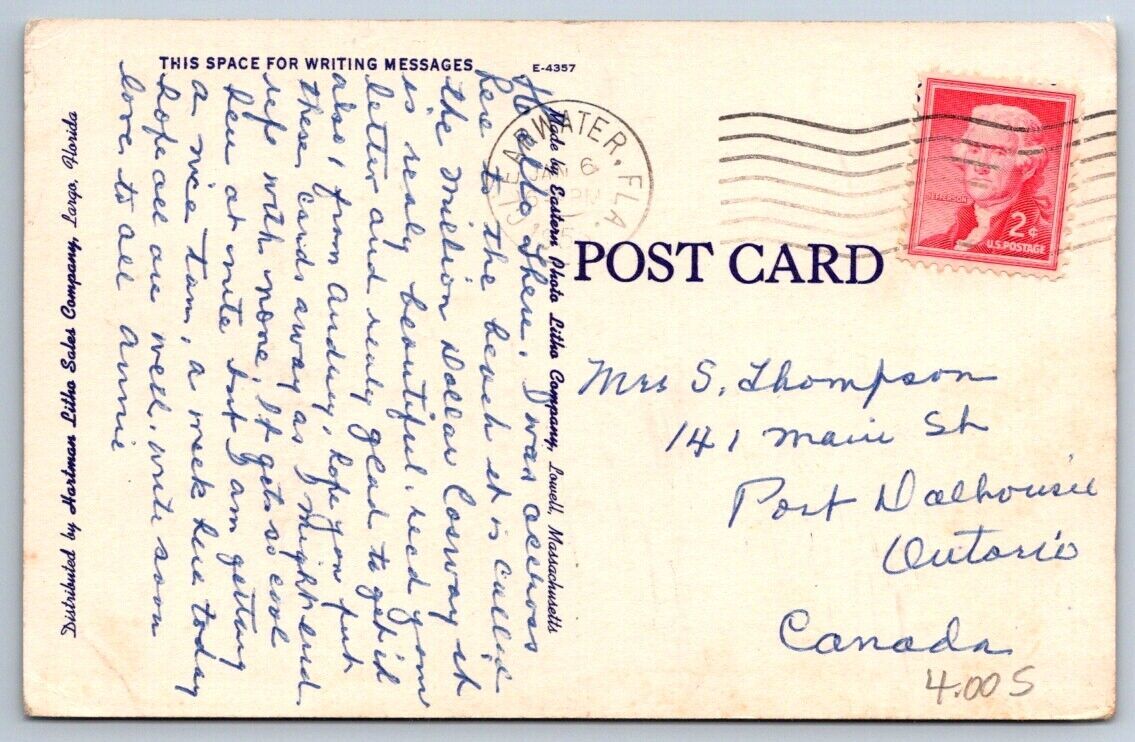 THIS SPACE FOR WRITING MESSAGES
E-4357
Hello There. I was accross
here to the beach it is called
the Million Dollar Cosway it
is realy beautiful. recd your
letter and realy glad to get it
also, from Audrey, hope you put
these cards away as I might end
up with none, It gets so cool
here at nite but I am getting
a nice tan, a week here today
hope all are well, write soon
love to all Annie
Distributed by Hartman Litho Sales Company, Largo, Florida
Made by Eastern Photo Litho Company, Lowell, Massachusetts
CLEARWATER, FLA.
JAN 6
PM
POST CARD
JEFFERSON
2¢
U.S. POSTAGE
Mrs S. Thompson
141 Main St
Port Dalhousie
Ontario
Canada
4.00 S